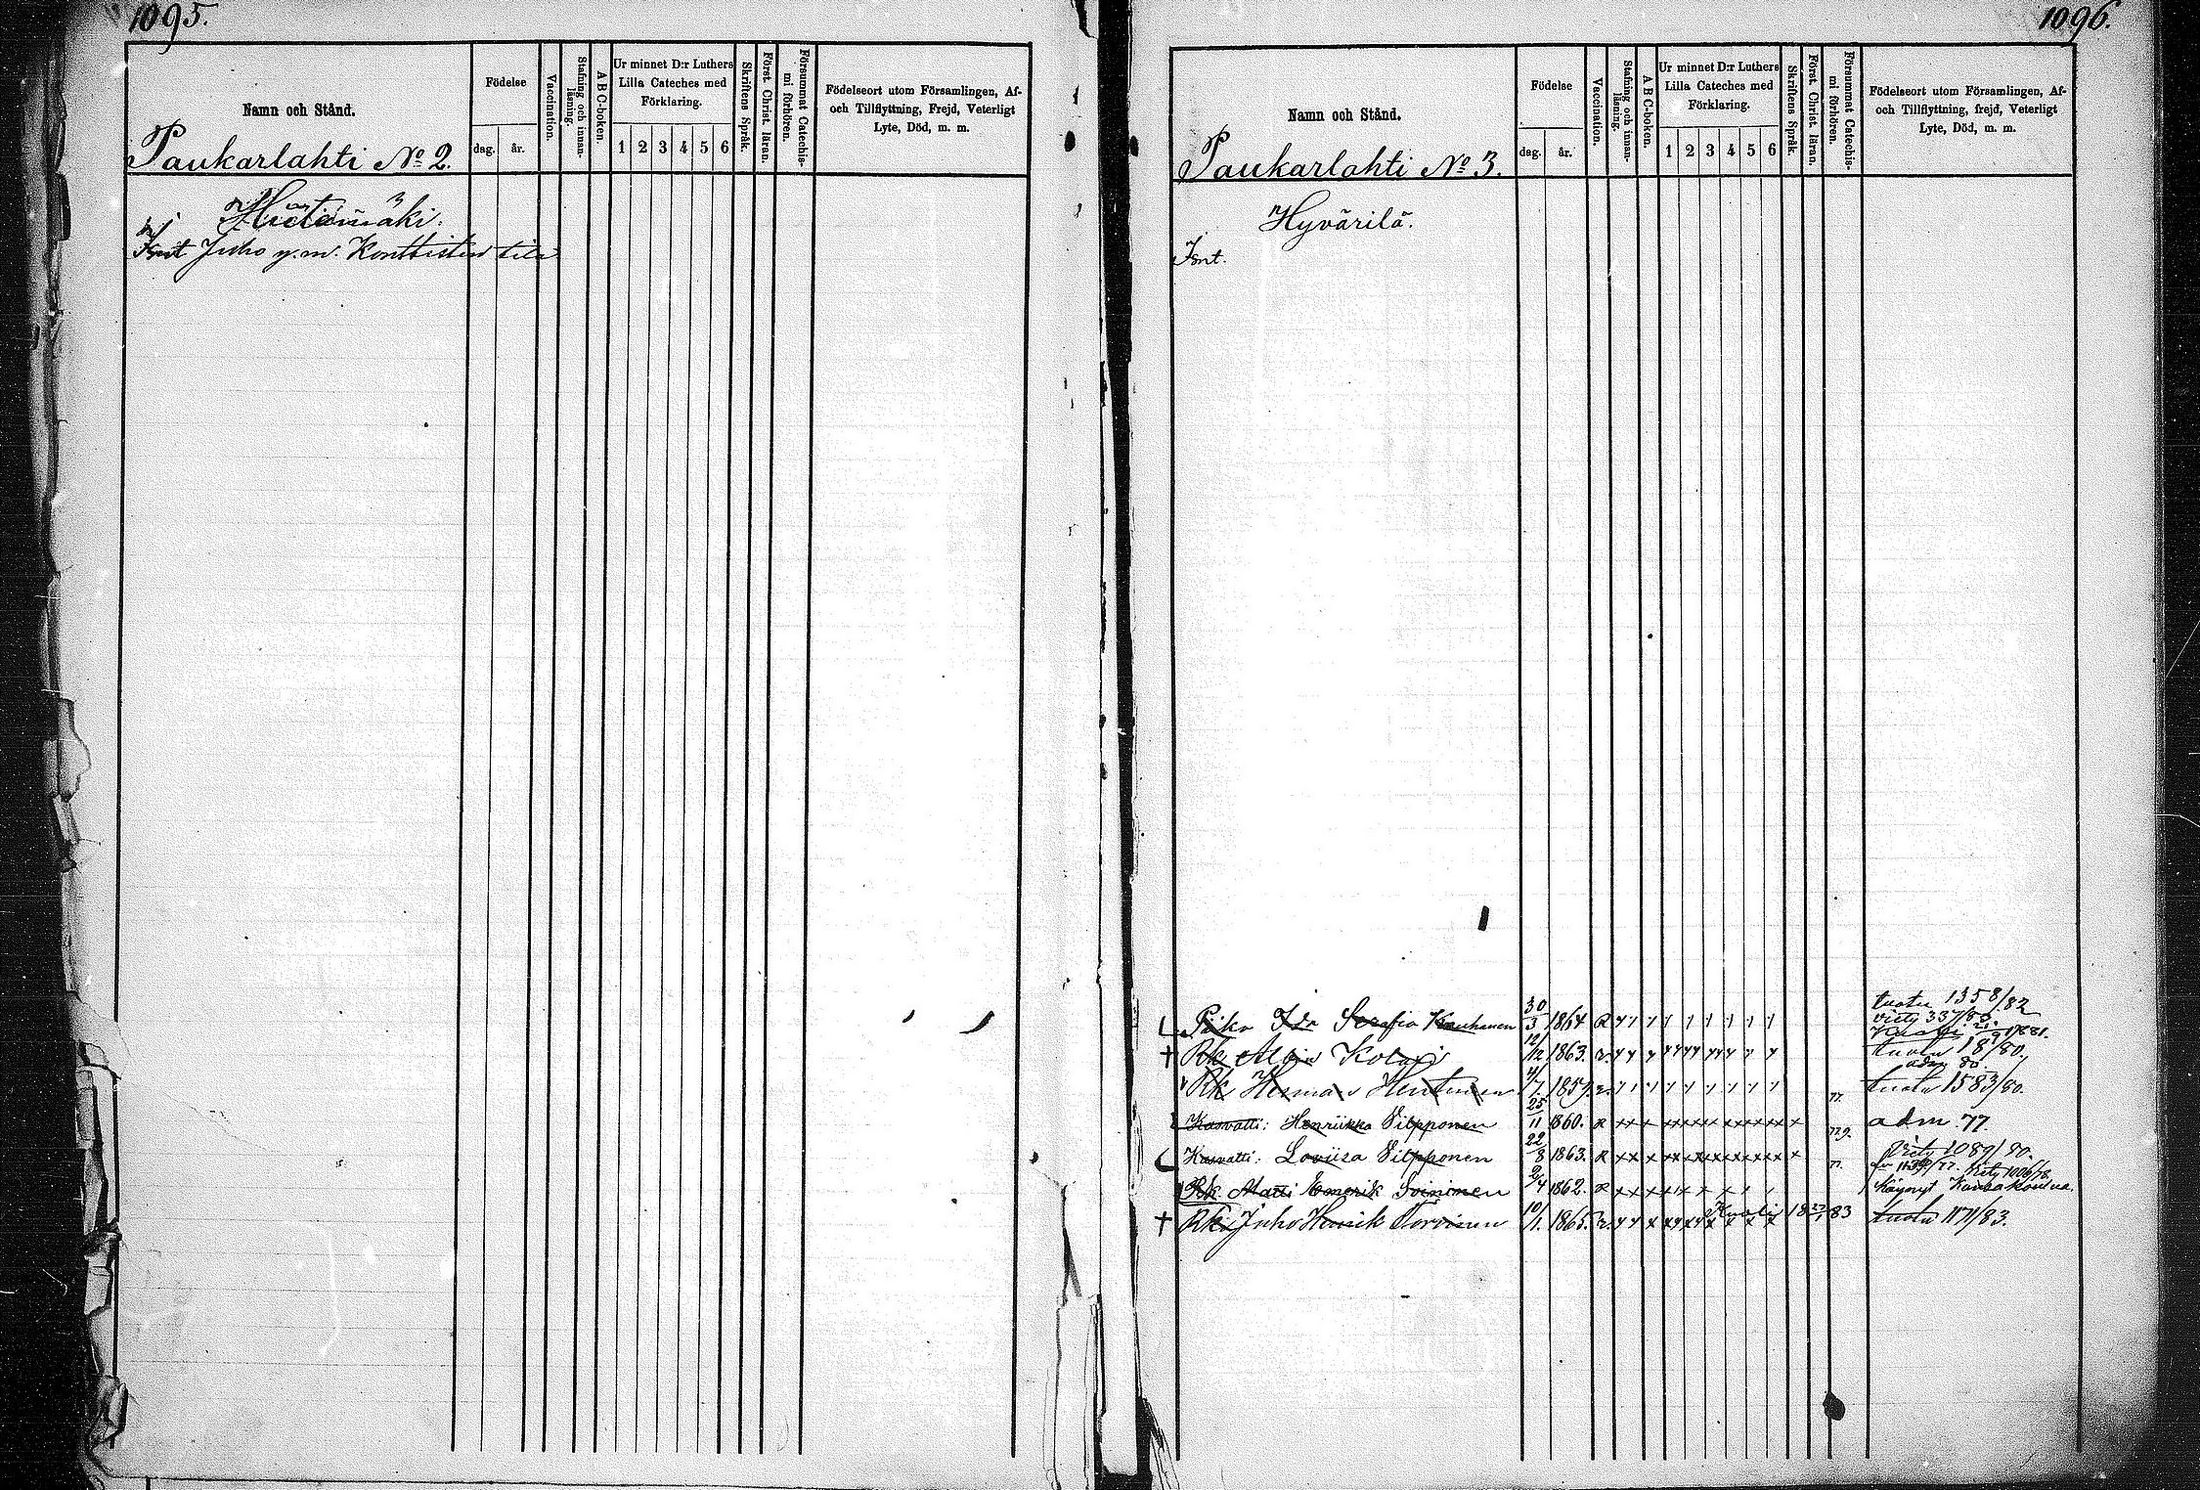 1095.
Namn och Stånd.
Födelse
dag.
år.
Vaccination.
Stafning och innan-
läsning.
ABC-boken.
Ur minnet D:r Luthers
Lilla Cateches med
Förklaring.
1 2 3 4 5 6
Skriftens Språk.
Först. Christ. läran.
Försummat Catechis-
mi förhören.
Födelseort utom Församlingen, Af-
och Tillflyttning, Frejd, Veterligt
Lyte, Död, m. m.
Paukarlahti No 2.
Juho y.m. Konttisten tila
1096.
Namn och Stånd.
Födelse
dag.
år.
Vaccination.
Stafning och innan-
läsning.
ABC-bokon.
Ur minnet D:r Luthers
Lilla Cateches med
Förklaring.
1 2 3 4 5 6
Skriftens Språk.
Först. Christ. läran.
Försummat Catechis-
mi förhören.
Födelseort utom Församlingen, Af-
och Tillflyttning, frejd, Veterligt
Lyte, Död, m. m.
Paukarlahti No 3.
Hyvärilä.
Isnt.
tuotu 1358/82
Piika Ida Serafia Kauhanen 30/3 1864 R
Rk Albin 12/12 1863.
adm 80.
Rk Herman 1857. tuotu 1583/80.
Kasvatti: Henriikka Silpponen 25/11 1860. R adm. 77.
Kasvatti: Loviisa Silpponen 22/8 1863. R Viety 1089/80.
Rk. Matti Emerik Soininen 9/4 1862. R Käynyt
Rk. Juho Henrik Torvinen 10/1. 1865. 83 tuotu 83.